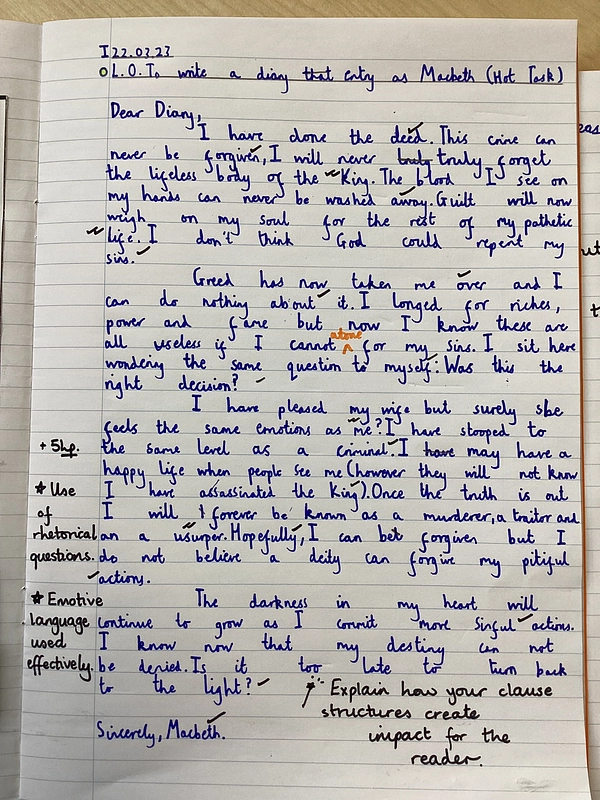 I 22.03.23
L.O. To write a diary that entry as Macbeth (Hot Task)
Dear Diary,
I have done the deed. This crime can
never be forgiven, I will never truly truly forget
the lifeless body of the King. The blood I see on
my hands can never be washed away. Guilt will now
weigh on my soul for the rest of my pathetic
life. I don't think God could repent my
sins.
Greed has now taken me over and I
can do nothing about it. I longed for riches,
power and fame but now I know these are
atone
all useless if I cannot ^ for my sins. I sit here
wondering the same question to myself: Was this the
right decision?
I have pleased my wife but surely she
feels the same emotions as me? I have stooped to
the same level as a criminal. I have may have a
happy life when people see me (however they will not know
I have assassinated the King). Once the truth is out
I will forever be known as a murderer, a traitor and
an a usurper. Hopefully, I can bet forgiven but I
do not believe a deity can forgive my pitiful
actions.
The darkness in my heart will
continue to grow as I commit more sinful actions.
I know now that my destiny can not
be denied. Is it too late to turn back
to the light?
Sincerely, Macbeth.
+ 5hp.
★ Use
of
rhetorical
questions.
★ Emotive
language
used
effectively.
Explain how your clause
structures create
impact for the
reader.